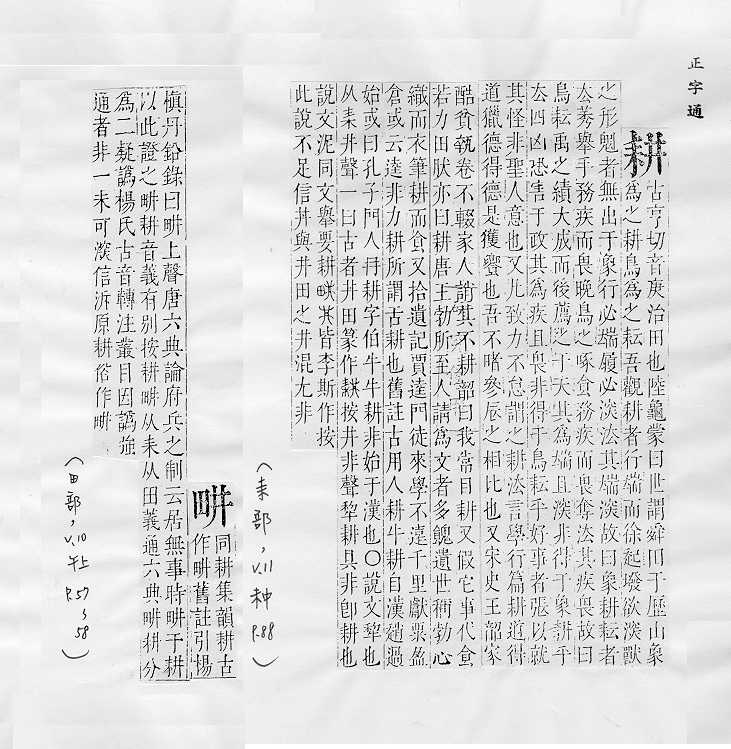 正字通
耕 古亨切音庚治田也陸龜蒙曰世謂舜田于歷山象
為之耕鳥為之耘吾觀耕者行端而徐起墢欲深獸
之形魁者無出于象行必端履必深法其端深故曰象耕耘者
去莠舉手務疾而畏晚鳥之啄食務疾而畏奪法其疾畏故曰
鳥耘禹之績大成而後薦之于天其為端且深非得于象耕乎
去四凶恐害于政其為疾且畏非得于鳥耘乎好事者張以就
其怪非聖人意也又凡致力不怠謂之耕法言學行篇耕道得
道獵德得德是獲饗也吾不睹參辰之相比也又宋史王韶家
酷貧執卷不輟家人誚其不耕韶曰我常目耕又假它事代食
若力田狀亦曰耕唐王勃所至人請為文者多餽遺世稱勃心
織而衣筆耕而食又拾遺記賈逵門徒來學不遠千里獻粟盈
倉或云逵非力耕所謂舌耕也舊註古用人耕牛耕自漢趙過
始或曰孔子門人冉耕字伯牛牛耕非始于漢也〇說文犂也
从耒井聲一曰古者井田篆作按井非聲犂耕具非卽耕也
說文泥同文舉要耕皆李斯作按
此說不足信丼與井田之井混尤非
(耒部,V.11未中 P.88)
畊 同耕集韻耕古
作畊舊註引楊
慎丹鉛錄曰畊上聲唐六典論府兵之制云居無事時畊于耕
以此證之畊耕音義有別按耕畊从耒从田義通六典畊耕分
為二疑譌楊氏古音轉注叢目因譌強
通者非一未可深信泝原耕俗作畊
(田部,V.10午上 P.57~58)